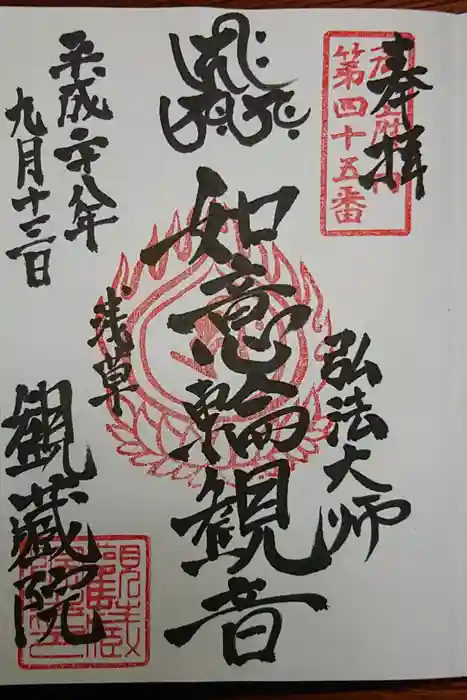 奉拝
第四十五番
弘法大師
如意輪観音
浅草
平成二十八年
九月十三日
観蔵院